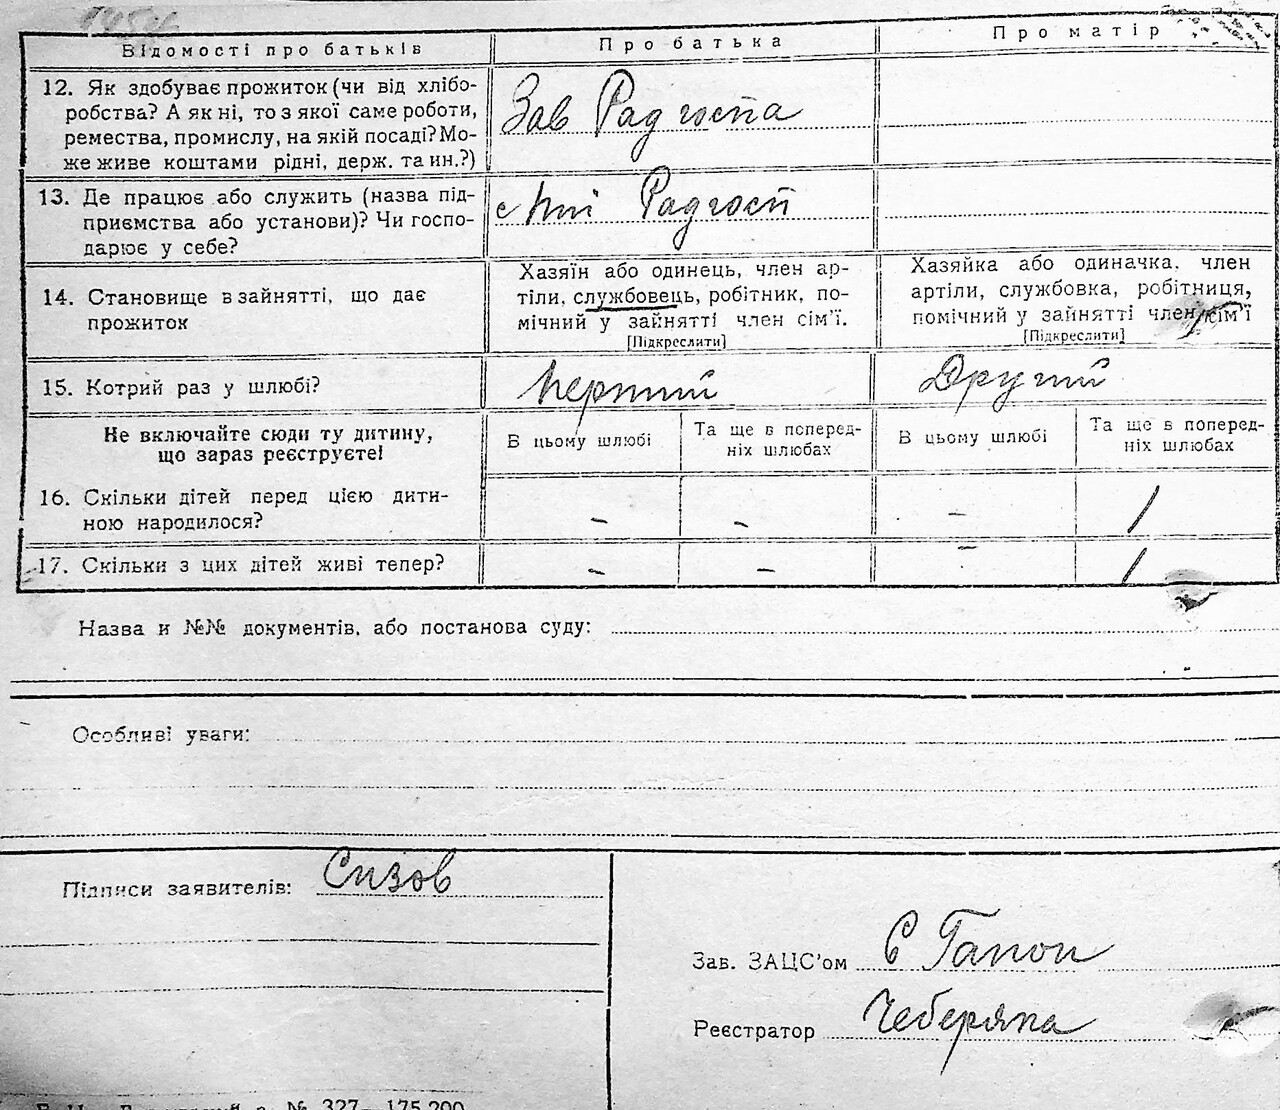 Відомості про батьків
Про батька
Про матір
12. Як здобуває прожиток (чи від хлібо-
робства? А як ні, то з якої саме роботи,
ремества, промислу, на якій посаді? Мо-
же живе коштами рідні, держ. та ин.?)
Зав Радгоспа
13. Де працює або служить (назва під-
приємства або установи)? Чи госпо-
дарює у себе?
Радгосп
14. Становище в зайнятті, що дає
прожиток
Хазяїн або одинець, член ар-
тіли, службовець, робітник, по-
мічний у зайнятті член сім'ї.
[Підкреслити]
Хазяйка або одиначка, член
артіли, службовка, робітниця,
помічний у зайнятті член сім'ї
[Підкреслити]
15. Котрий раз у шлюбі?
Перший
Другий
Не включайте сюди ту дитину,
що зараз реєструєте!
В цьому шлюбі
Та ще в поперед-
ніх шлюбах
В цьому шлюбі
Та ще в поперед-
ніх шлюбах
16. Скільки дітей перед цією дити-
ною народилося?
– – – /
17. Скільки з цих дітей живі тепер?
– – – /
Назва и №№ документів, або постанова суду:
Особливі уваги:
Підписи заявителів: Сизов
Зав. ЗАЦС'ом Є Гапон
Реєстратор Чеберяка
№ 327– 175.200